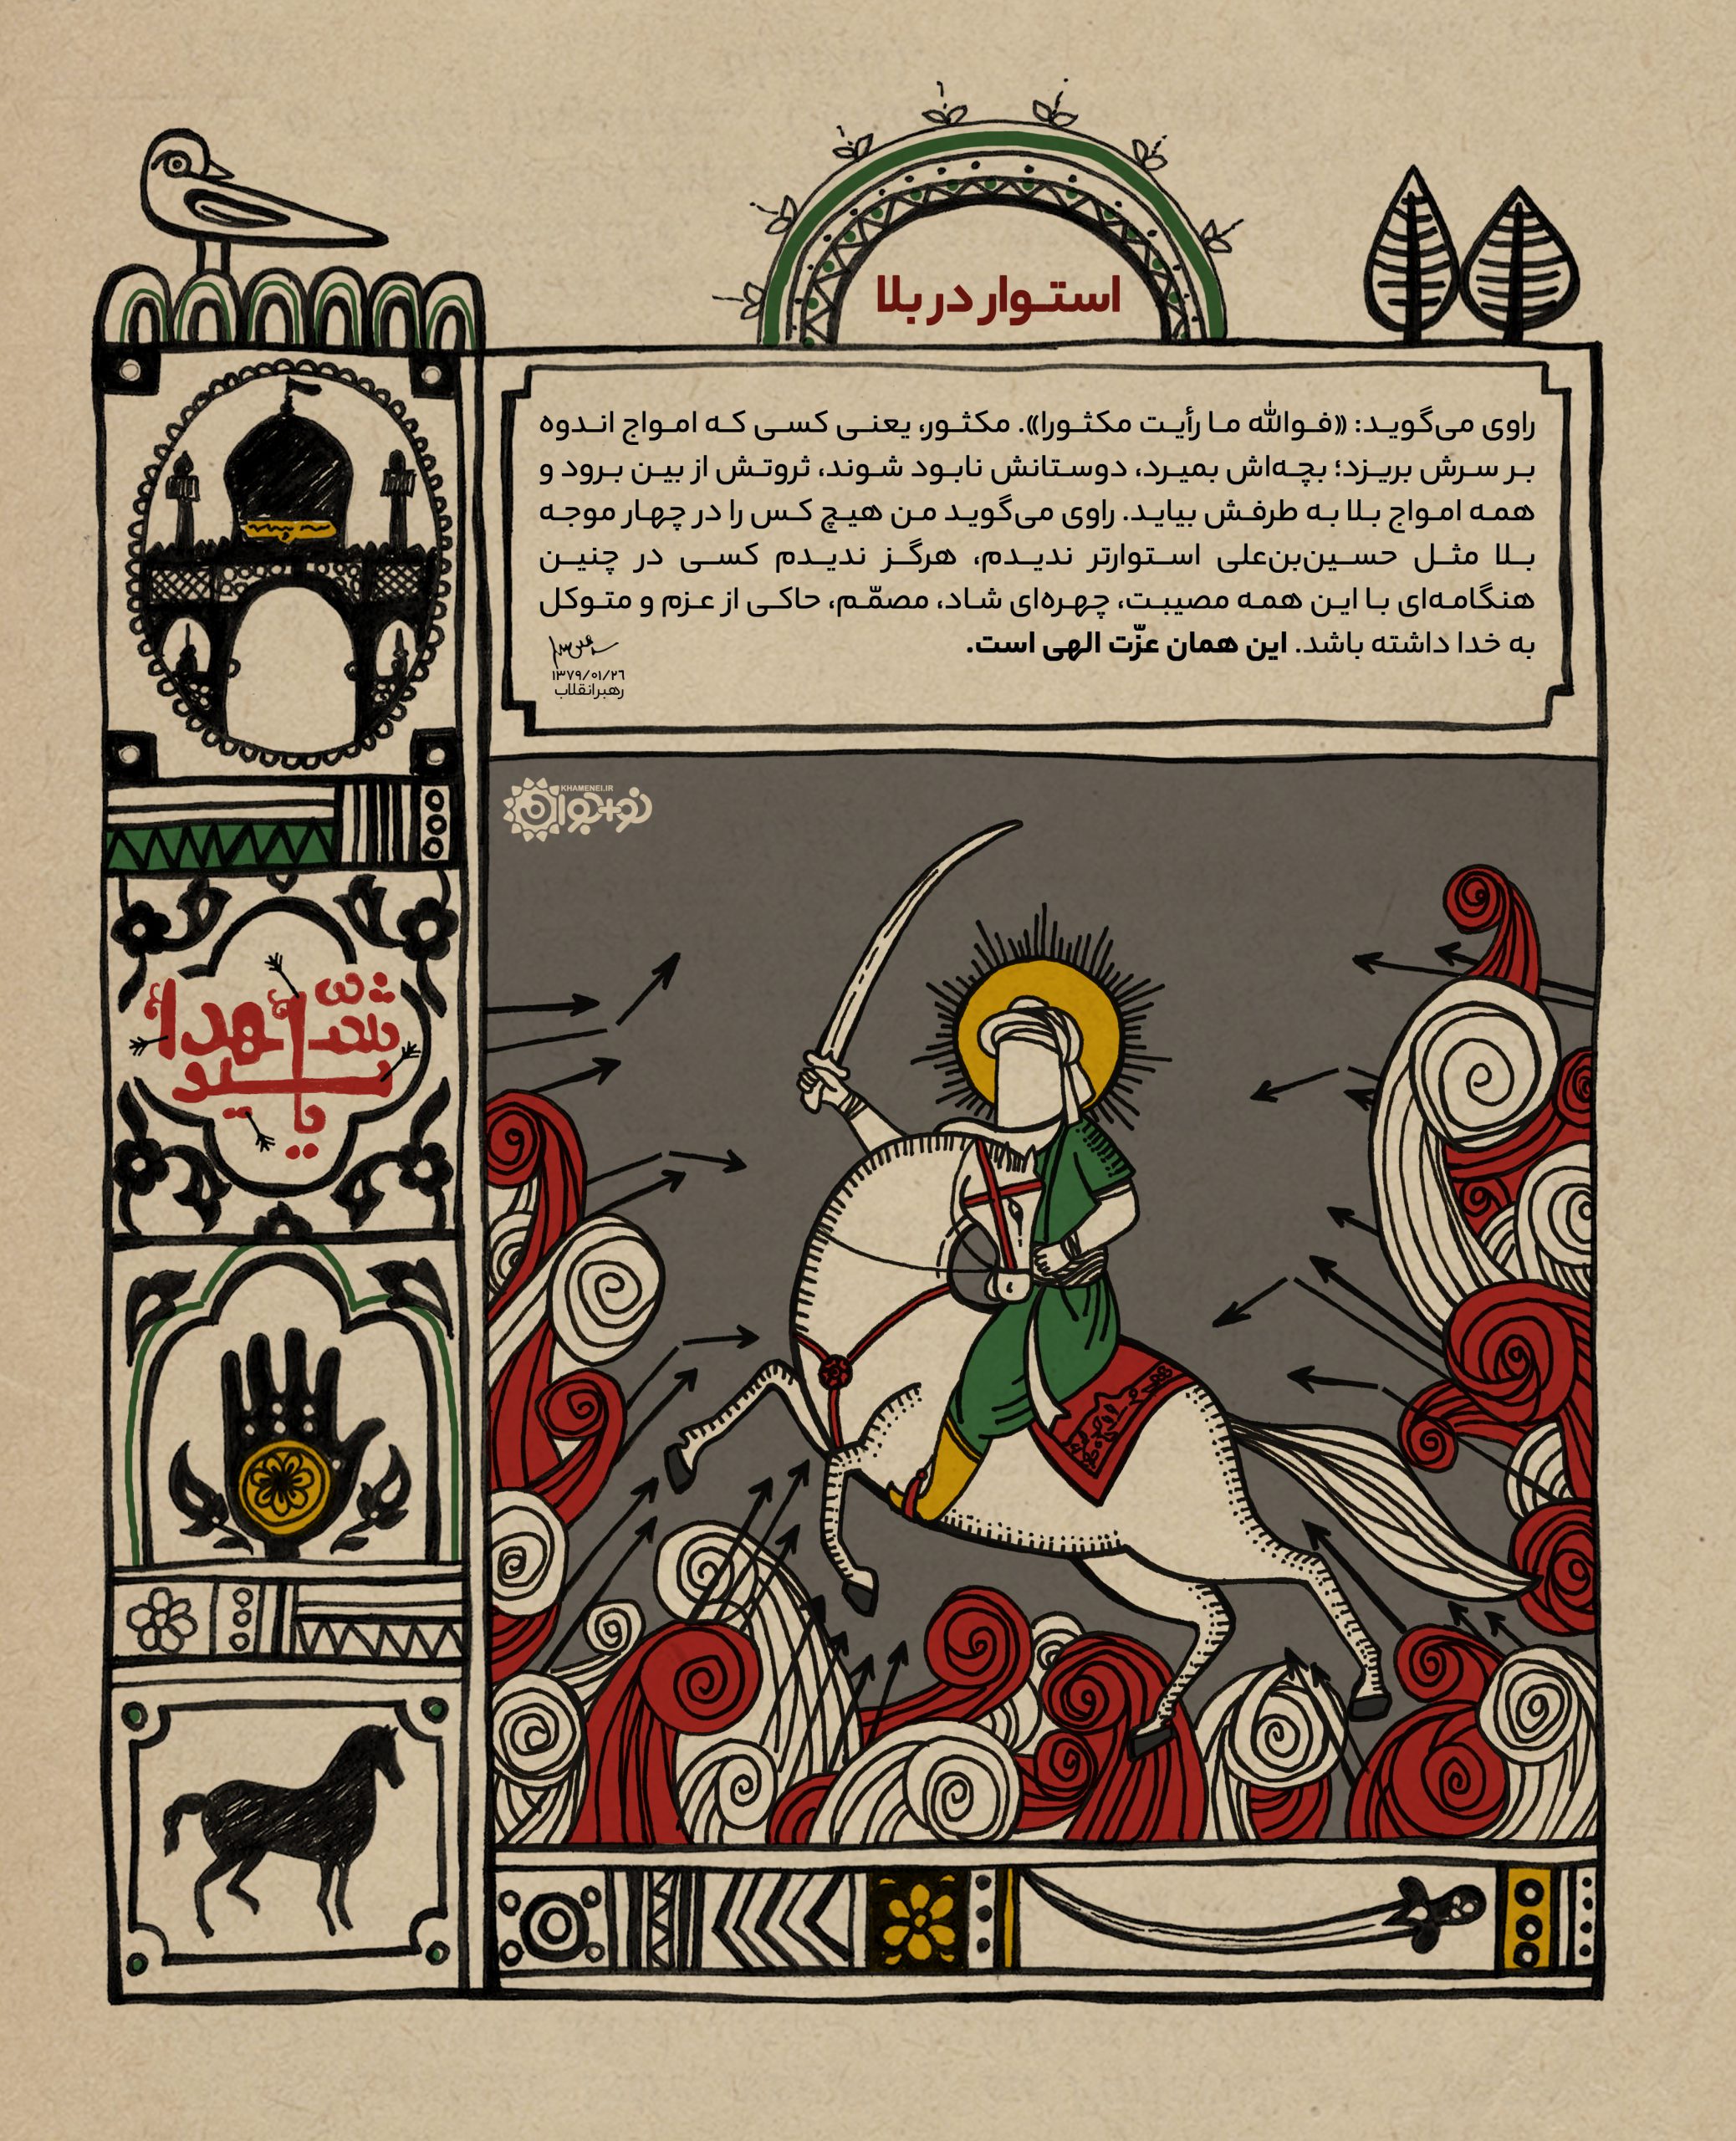 استوار در بلا
راوی می‌گوید: «فوالله ما رأیت مکثورا». مکثور، یعنی کسی که امواج اندوه
بر سرش بریزد؛ بچه‌اش بمیرد، دوستانش نابود شوند، ثروتش از بین برود و
همه امواج بلا به طرفش بیاید. راوی می‌گوید من هیچ کس را در چهار موجه
بلا مثل حسین‌بن‌علی استوارتر ندیدم، هرگز ندیدم کسی در چنین
هنگامه‌ای با این همه مصیبت، چهره‌ای شاد، مصمّم، حاکی از عزم و متوکل
به خدا داشته باشد. این همان عزّت الهی است.
۱۳۷۹/۰۱/۲۶
رهبرانقلاب
KHAMENEI.IR
نو+جوان
یا سید الشهدا